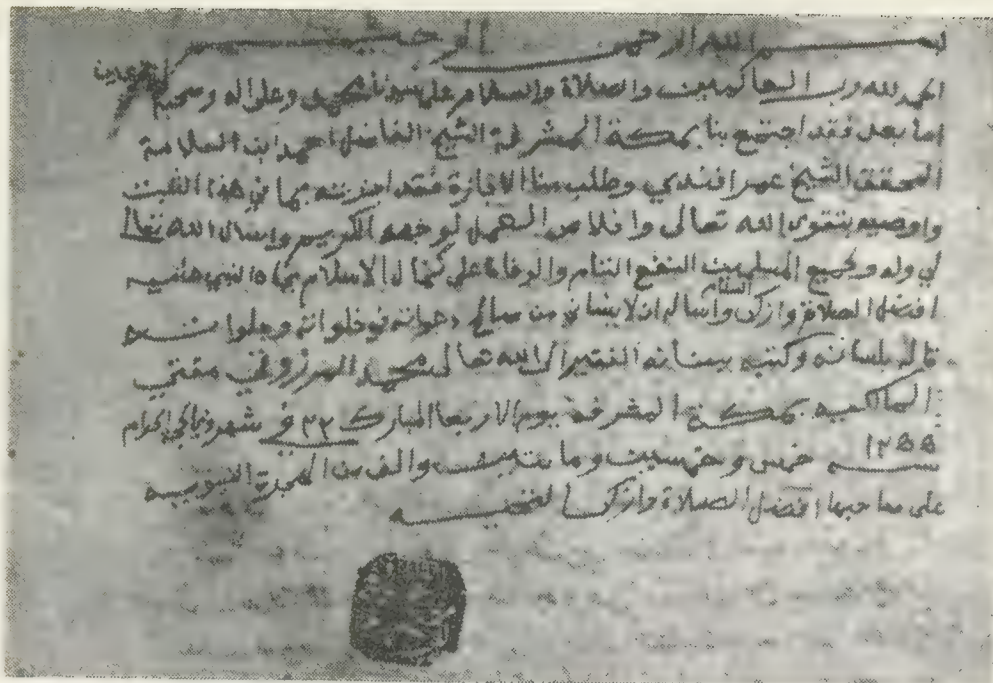 بسم الله الرحمن الرحيم
الحمد لله رب العالمين والصلاة والسلام على سيدنا محمد وعلى اله وصحبه اجمعين
اما بعد فقد اجتمع بنا بمكة المشرفة الشيخ الفاضل احمد ابن العلامة
المحقق الشيخ عمر افندي وطلب منا الاجازة فقد اجزته بما في هذا الثبت
واوصيه بتقوى الله تعالى واخلاص العمل لوجهه الكريم واسال الله تعالى
لي وله ولجميع المسلمين النفع التام والوفاة على كمال الاسلام بجاه النبي عليه
افضل الصلاة وازكى السلام واساله ان لا ينساني من صالح دعواته في خلواته وجلواته
قاله بلسانه وكتبه ببنانه الفقير الى الله تعالى محمد المرزوقي مفتي
المالكيه بمكة المشرفة يوم الاربعا المبارك ٢٣ في شهر ذي الحرام
١٢٥٥ سنة خمس وخمسين ومائتين والف من الهجرة النبويه
على صاحبها افضل الصلاة وازكى التحيه